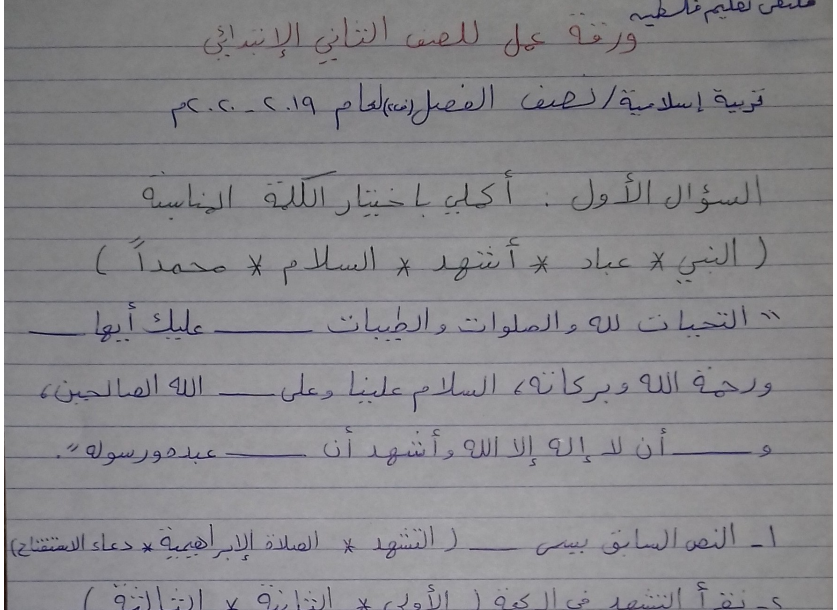 ملتقى تعليم فلسطين
ورقة عمل للصف الثاني الإبتدائي
تربية إسلامية / نصف الفصل (ف٢) لعام ٢٠١٩ - ٢٠٢٠م
السؤال الأول : أكملي باختيار الكلمة المناسبة
( النبي * عباد * أشهد * السلام * محمداً )
" التحيات لله والصلوات والطيبات ــــــ عليك أيها ــــــ
ورحمة الله وبركاته، السلام علينا وعلى ــــــ الله الصالحين،
و ــــــ أن لا إله إلا الله وأشهد أن ــــــ عبده ورسوله ".
١- النص السابق يسمى ــــــ ( التشهد * الصلاة الإبراهيمية * دعاء الاستفتاح)
٢- نقرأ التشهد في الركعة ( الأولى * الثانية * الثالثة )